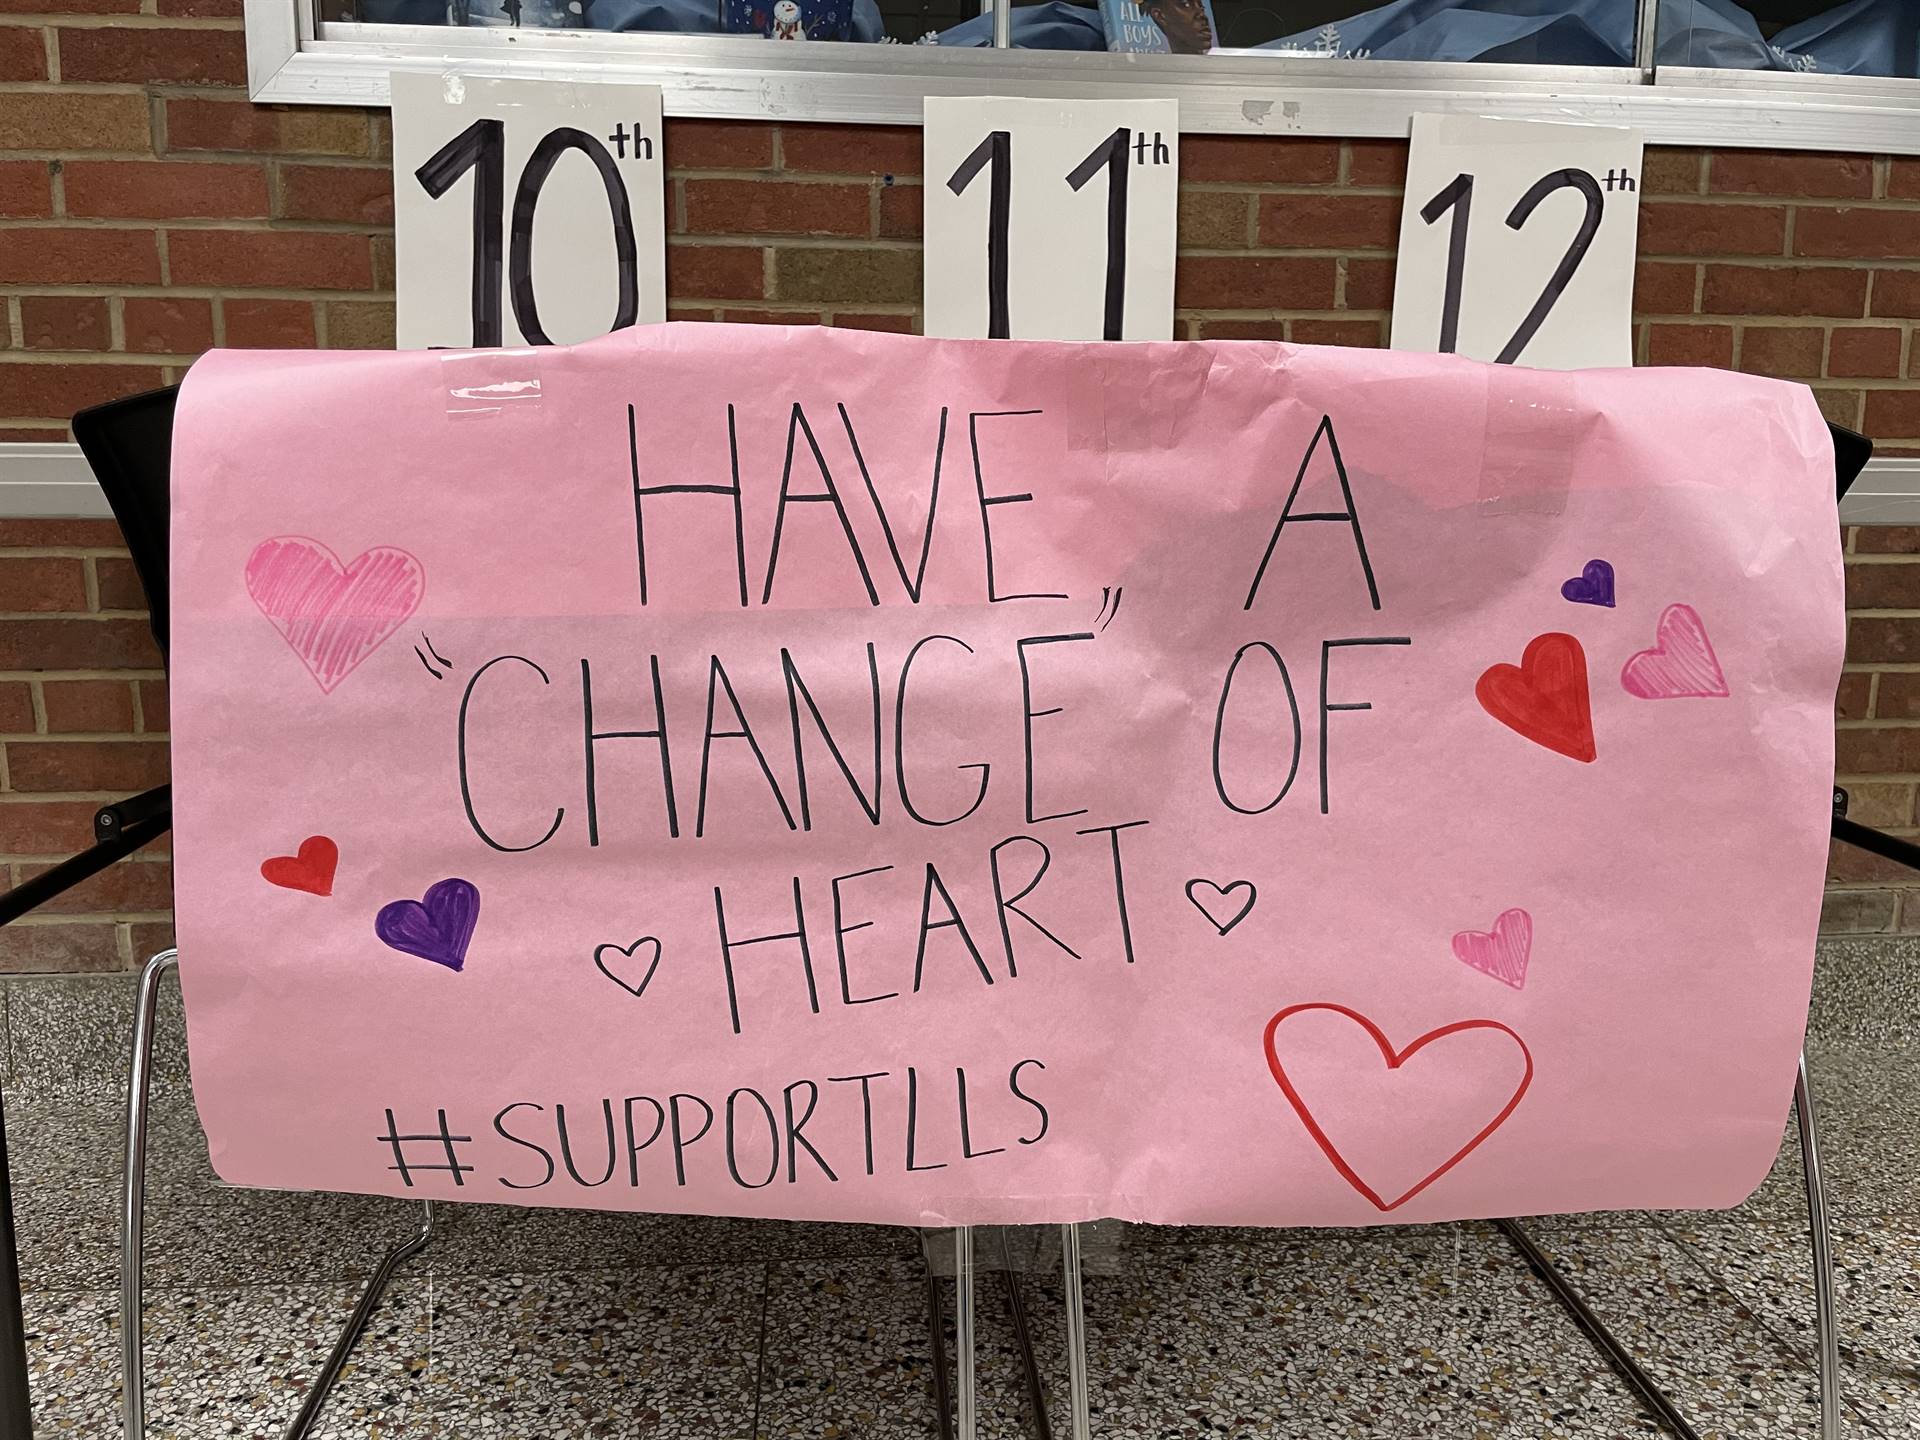 ALL
BOYS
10th
11th
12th
HAVE A
"CHANGE" OF
HEART
#SUPPORTLLS